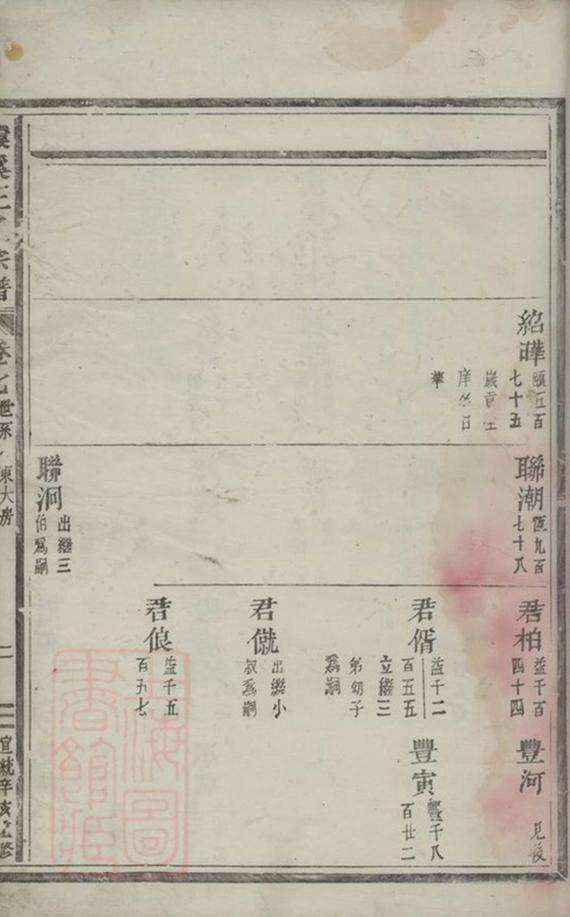 紹曄
頤五百
七十五
歲貢生
庠名日
華
聯潮
恆九百
七十八
聯泂
出繼三
伯爲嗣
君柏
益千百
四十四
豐河
見後
君偦
益千二
百五五
立繼三
弟幼子
爲嗣
豐寅
豐千八
百廿二
君僦
出繼小
叔爲嗣
君俍
益千五
百五七
王氏宗譜
卷七
世系
東大房
二
宣統辛亥重修